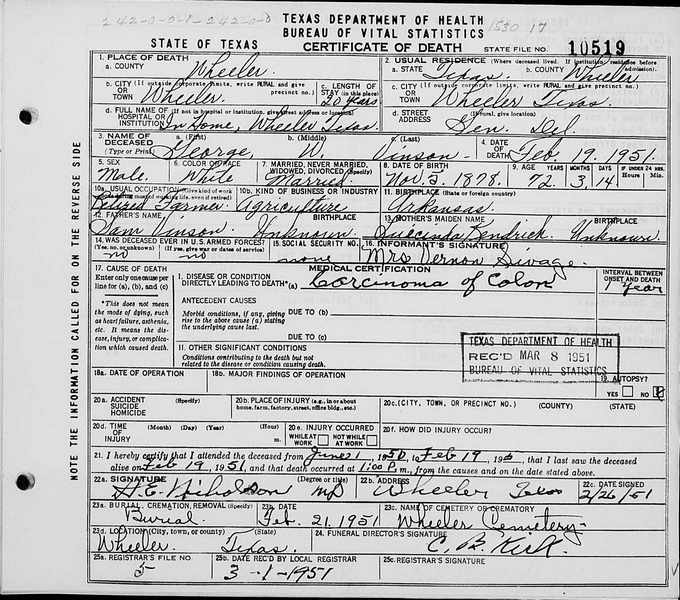 242-0-0-8-242-0-0
TEXAS DEPARTMENT OF HEALTH
BUREAU OF VITAL STATISTICS
1530 17
STATE OF TEXAS CERTIFICATE OF DEATH STATE FILE NO. 10519
1. PLACE OF DEATH
a. COUNTY Wheeler.
2. USUAL RESIDENCE (Where deceased lived. If institution: residence before admission).
a. STATE Texas. b. COUNTY Wheeler
b. CITY (If outside corporate limits, write RURAL and give precinct no.)
OR TOWN Wheeler.
c. LENGTH OF STAY (in this place) 20 years
c. CITY (If outside corporate limits, write RURAL and give precinct no.)
OR TOWN Wheeler Texas.
d. FULL NAME OF (If not in hospital or institution, give street address or location)
HOSPITAL OR INSTITUTION In Home, Wheeler Texas.
d. STREET ADDRESS (If rural, give location)
Gen. Del.
3. NAME OF DECEASED (Type or Print)
a. (First) George b. (Middle) W c. (Last) Vinson
4. DATE OF DEATH Feb. 19. 1951.
5. SEX Male.
6. COLOR OR RACE White
7. MARRIED, NEVER MARRIED, WIDOWED, DIVORCED (Specify) Married.
8. DATE OF BIRTH Nov. 5. 1878.
9. AGE YEARS 72 MONTHS 3 DAYS 14 IF UNDER 24 HRS. Hours Min.
10a. USUAL OCCUPATION (Give kind of work done during most of working life, even if retired) Retired Farmer
10b. KIND OF BUSINESS OR INDUSTRY Agriculture
11. BIRTHPLACE (State or foreign country) Arkansas.
12. FATHER'S NAME BIRTHPLACE
Sam Vinson. Unknown.
13. MOTHER'S MAIDEN NAME BIRTHPLACE
Kendrick. Unknown.
14. WAS DECEASED EVER IN U.S. ARMED FORCES?
(Yes, no, or unknown) (If yes, give war or dates of service)
no no
15. SOCIAL SECURITY NO. none
16. INFORMANT'S SIGNATURE
Mrs Vernon Sivage.
17. CAUSE OF DEATH
Enter only one cause per line for (a), (b), and (c)
*This does not mean the mode of dying, such as heart failure, asthenia, etc. It means the disease, injury, or complication which caused death.
MEDICAL CERTIFICATION
I. DISEASE OR CONDITION DIRECTLY LEADING TO DEATH* (a) Carcinoma of Colon
INTERVAL BETWEEN ONSET AND DEATH
Year
ANTECEDENT CAUSES
Morbid conditions, if any, giving rise to the above cause (a) stating the underlying cause last.
DUE TO (b)
DUE TO (c)
11. OTHER SIGNIFICANT CONDITIONS
Conditions contributing to the death but not related to the disease or condition causing death.
TEXAS DEPARTMENT OF HEALTH
REC'D MAR 8 1951
BUREAU OF VITAL STATISTICS
18a. DATE OF OPERATION
18b. MAJOR FINDINGS OF OPERATION
19. AUTOPSY?
YES NO
20a. ACCIDENT SUICIDE HOMICIDE (Specify)
20b. PLACE OF INJURY (e.g., in or about home, farm, factory, street, office bldg., etc.)
20c. (CITY, TOWN, OR PRECINCT NO.) (COUNTY) (STATE)
20d. TIME OF INJURY (Month) (Day) (Year) (Hour) m.
20e. INJURY OCCURRED
WHILE AT WORK NOT WHILE AT WORK
20f. HOW DID INJURY OCCUR?
21. I hereby certify that I attended the deceased from June 1, 1950, to Feb 19, 195, that I last saw the deceased
alive on Feb 19, 1951, and that death occurred at 1:00 P.m., from the causes and on the date stated above.
22a. SIGNATURE (Degree or title)
H.E. Nicholson MD
22b. ADDRESS
Wheeler Texas
22c. DATE SIGNED
2/26/51
23a. BURIAL, CREMATION, REMOVAL (Specify)
Burial.
23b. DATE
Feb. 21. 1951
23c. NAME OF CEMETERY OR CREMATORY
Wheeler Cemetery
23d. LOCATION (City, town, or county) (State)
Wheeler. Texas.
24. FUNERAL DIRECTOR'S SIGNATURE
C. B. Kirk.
25a. REGISTRAR'S FILE NO.
5
25b. DATE REC'D BY LOCAL REGISTRAR
3-1-1951
25c. REGISTRAR'S SIGNATURE
NOTE THE INFORMATION CALLED FOR ON THE REVERSE SIDE